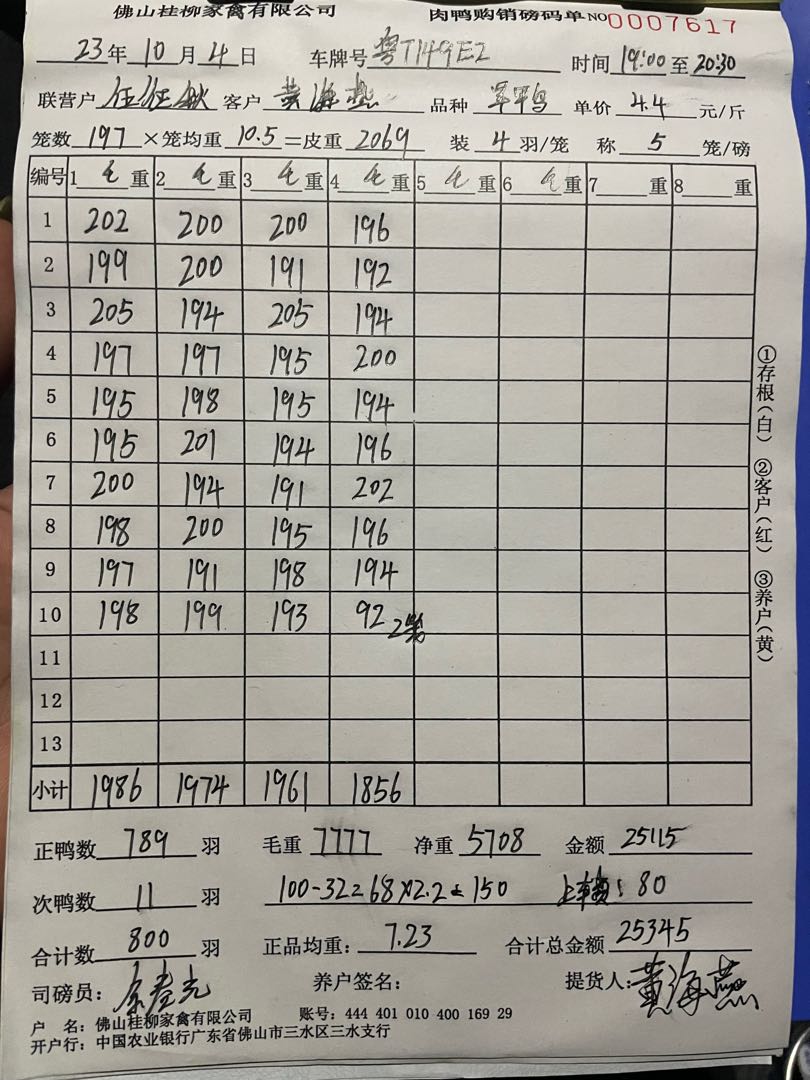 佛山桂柳家禽有限公司 肉鸭购销磅码单 NO0007617
23年10月4日 车牌号 粤T149E2 时间 19:00 至 20:30
联营户 客户 黄海燕 品种 单价 4.4 元/斤
笼数 197 ×笼均重 10.5 =皮重 2069 装 4 羽/笼 称 5 笼/磅
编号 1 毛重 2 毛重 3 毛重 4 毛重 5 毛重 6 毛重 7 重 8 重
1 202 200 200 196
2 199 200 191 192
3 205 194 205 194
4 197 197 195 200
5 195 198 195 194
6 195 201 194 196
7 200 194 191 202
8 198 200 195 196
9 197 191 198 194
10 198 199 193 92 2笼
11
12
13
小计 1986 1974 1961 1856
①存根(白) ②客户(红) ③养户(黄)
正鸭数 789 羽 毛重 7777 净重 5708 金额 25115
次鸭数 11 羽 100-32=68×2.2=150 上车费:80
合计数 800 羽 正品均重: 7.23 合计总金额 25345
司磅员: 养户签名: 提货人: 黄海燕
户 名:佛山桂柳家禽有限公司 账号:444 401 010 400 169 29
开户行:中国农业银行广东省佛山市三水区三水支行